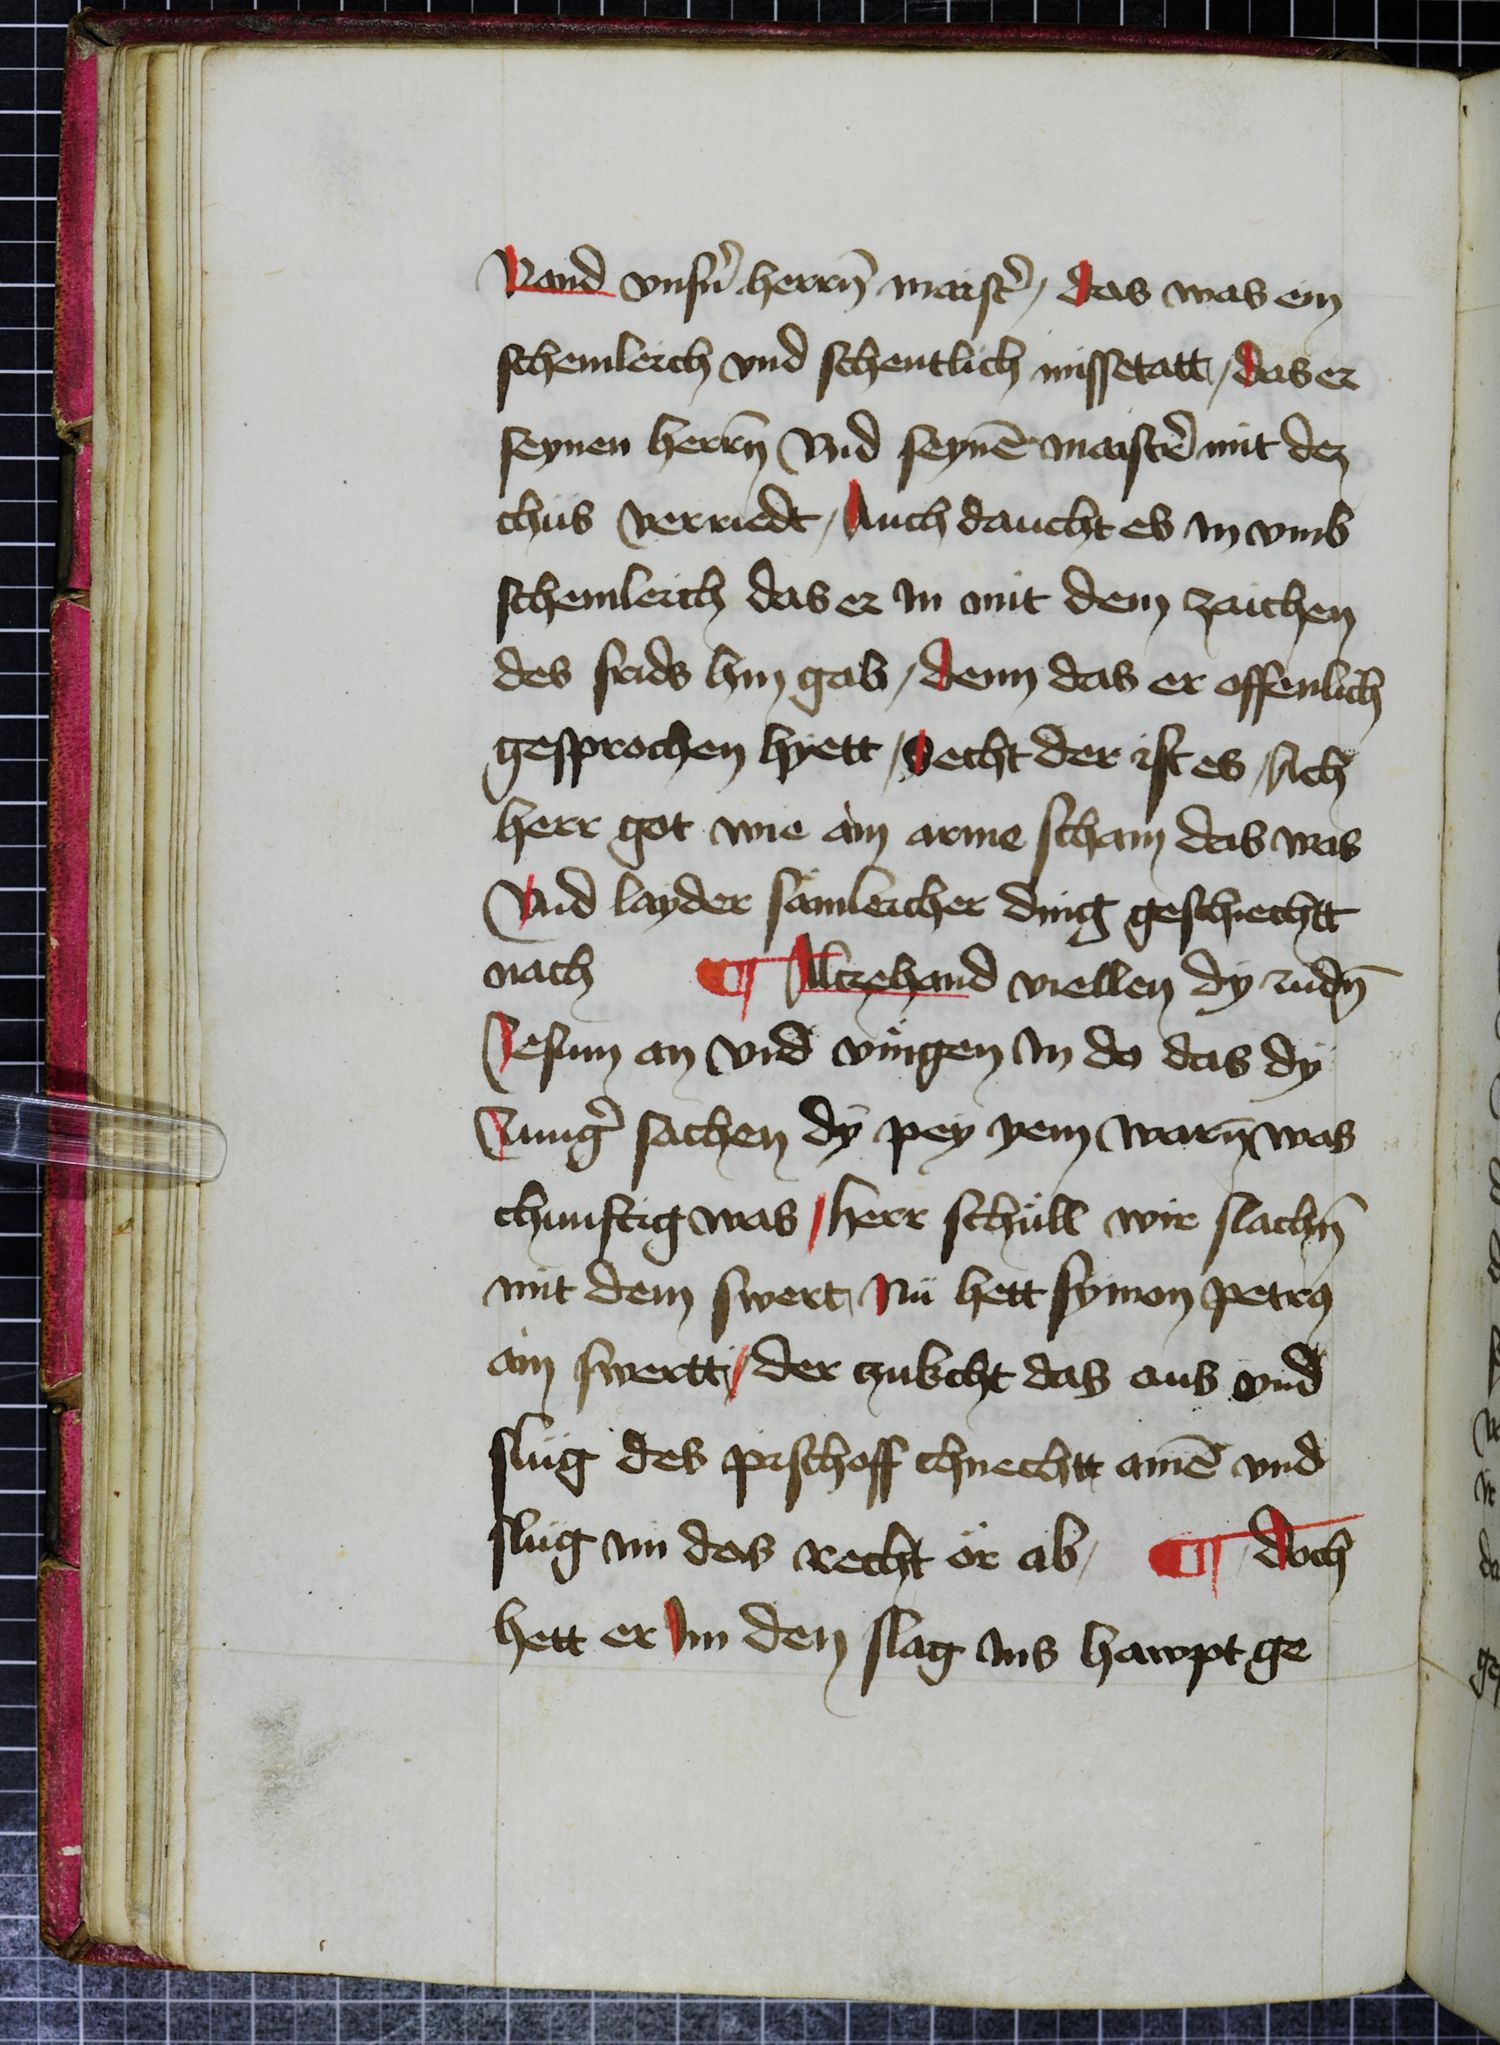 Vand vnsn̄ herrn̄ maist̄ / das was ein
schemleich vnd schentlich missetatt / das er
seynen herrn̄ Vnd seynē maistē mit dez
chüs verriedt / Auch daucht es in vmb
schemleich das er in mit dem zaichen
des frids hin gab / denn das er offenlich
gesprochen hyett / Secht der ist es / Ach
herr got wie ain arme scham das was
Vnd layder sämleicher ding geschiechtt
nach ¶ Alczehand viellen dÿ iudn̄
Jesum an vnd viengen in do das dÿ
Junḡ sachen dÿ pey yem warn̄ was
chunftig was / herr schüll wir slachn̄
mit dem swert / Nü hett symon petrꝰ
ain swertt / der czukcht das aus vnd
slüg des pischoff chnechtt ainē vnd
slüg im das recht ör ab / ¶ doch
hett er Im den slag ins hawpt ge